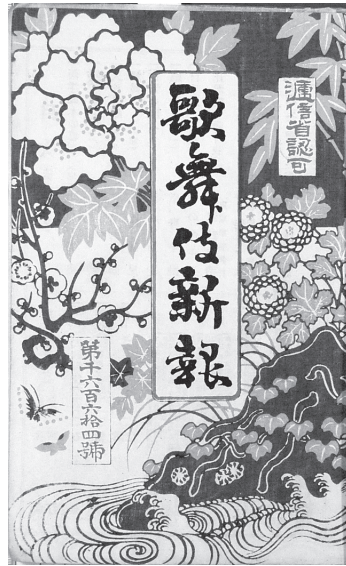 逓信省認可
歌舞伎新報
第千六百六拾四號